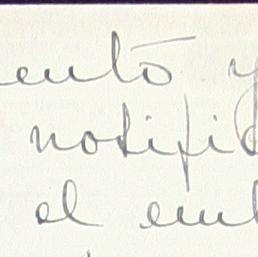 entó y
notifi
el emb